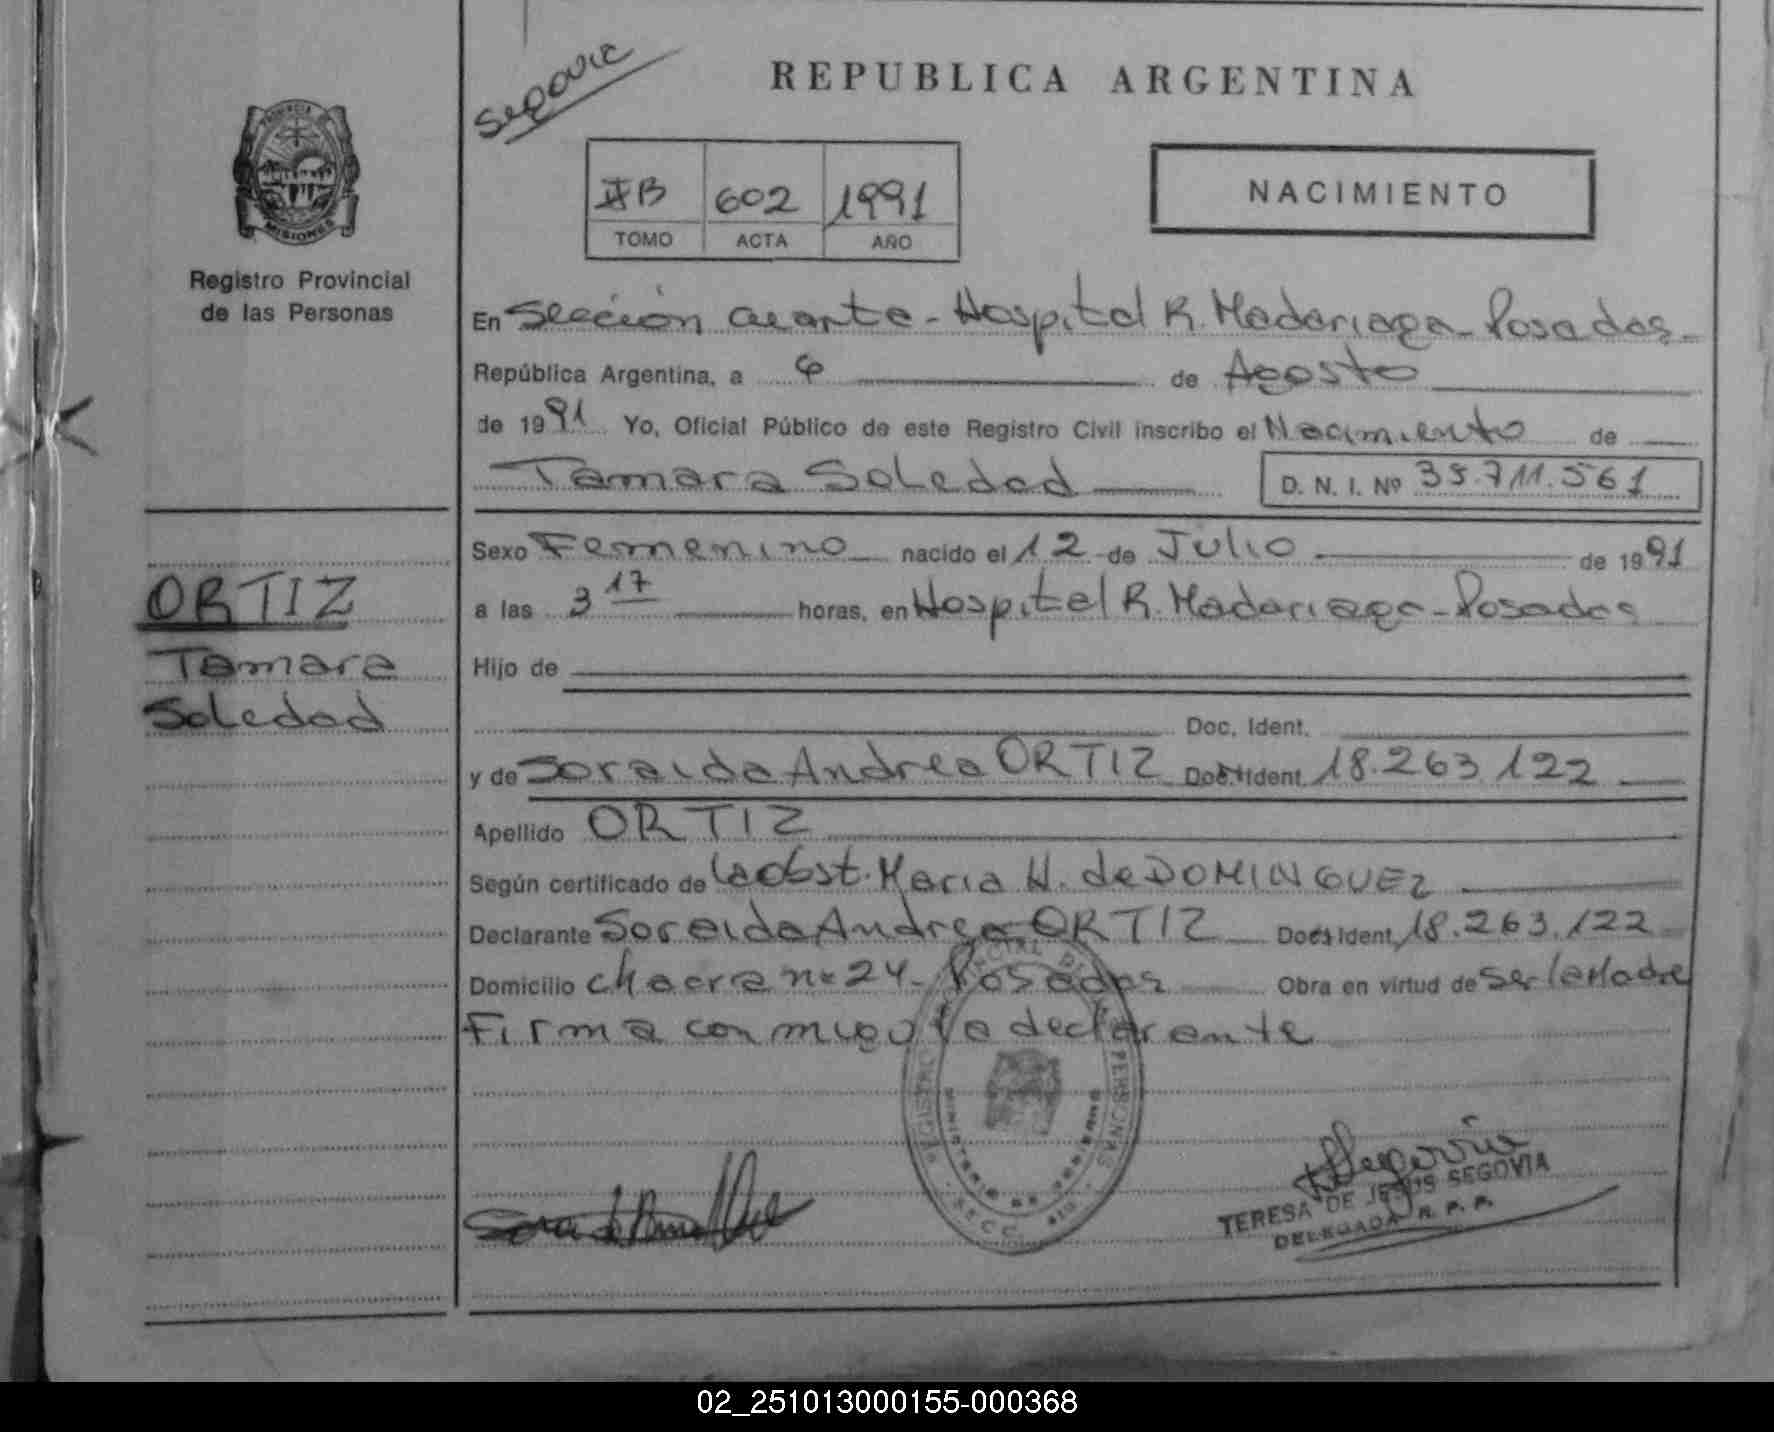 Segovia
REPUBLICA ARGENTINA
PROVINCIA DE
MISIONES
Registro Provincial
de las Personas
IIB 602 1991
TOMO ACTA AÑO
NACIMIENTO
En Sección Cuarta - Hospital R. Madariaga - Posadas -
República Argentina, a 6 de Agosto
de 1991 Yo, Oficial Público de este Registro Civil inscribo el Nacimiento de
Tamara Soledad D. N. I. Nº 35.711.561
Sexo Femenino nacido el 12 de Julio de 1991
a las 3 17 horas, en Hospital R. Madariaga - Posadas
Hijo de
Doc. Ident.
y de Soraida Andrea ORTIZ Doc. Ident. 18.263.122
Apellido ORTIZ
Según certificado de la Obst. Maria H. de DOMINGUEZ
Declarante Soraida Andrea ORTIZ Doc. Ident. 18.263.122
Domicilio Chacra nº 24 - Posadas Obra en virtud de ser la Madre
Firma conmigo la declarante
ORTIZ
Tamara
Soledad
REGISTRO PROVINCIAL DE LAS PERSONAS
MINISTERIO DE GOBIERNO
SECC. 4ta.
TERESA DE JESUS SEGOVIA
DELEGADA R. P. P.
02_251013000155-000368